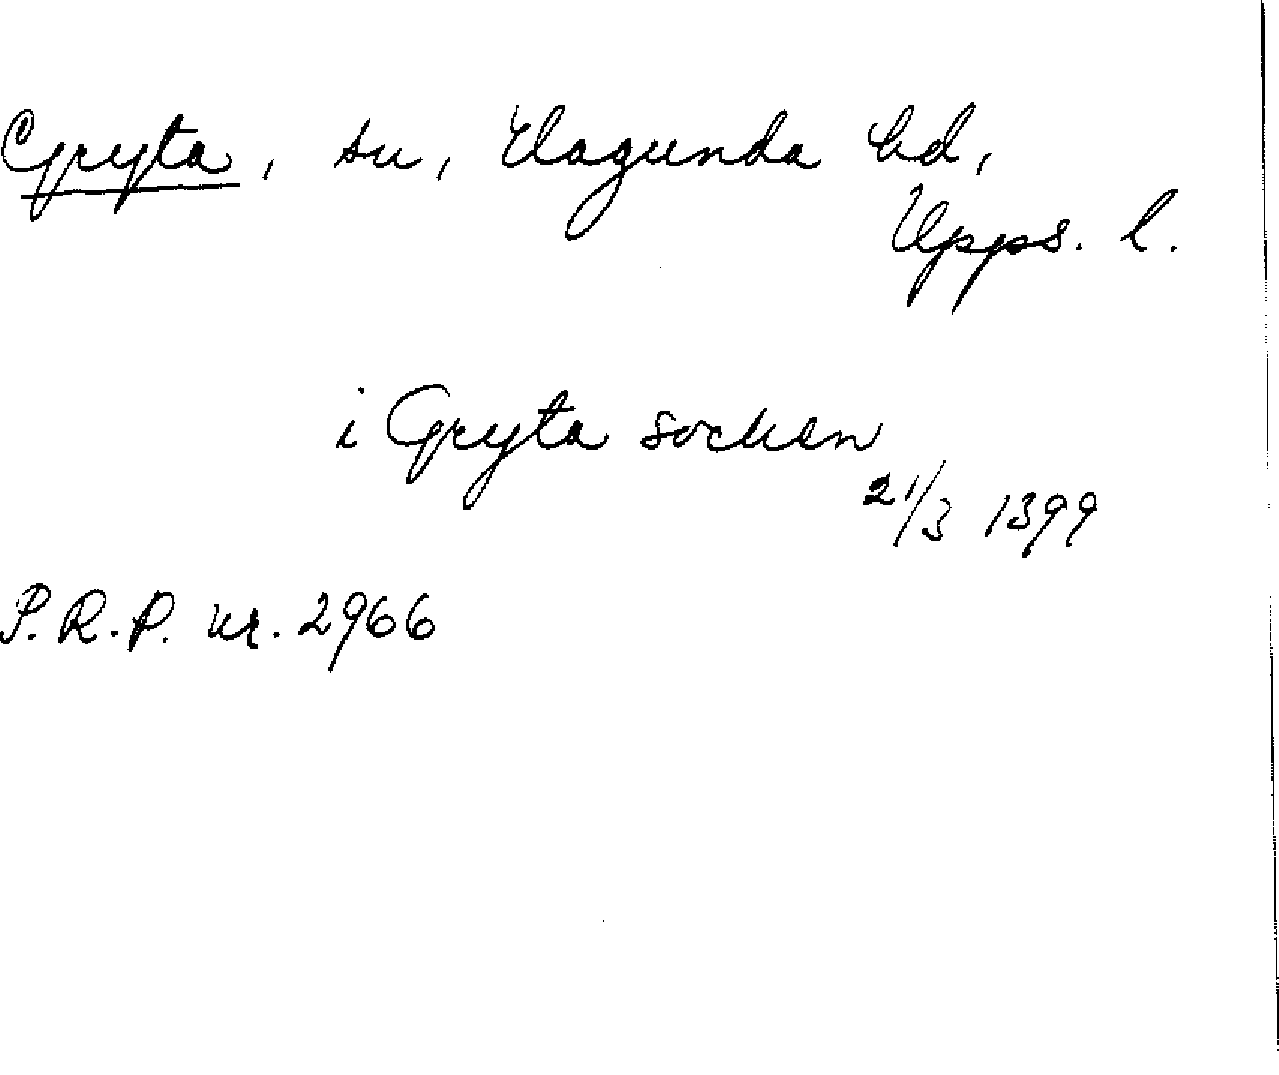 Gryta, sn, Hagunda hd,
Upps. l.
i Gryta socken
21/3 1399
P.R.P. nr. 2966